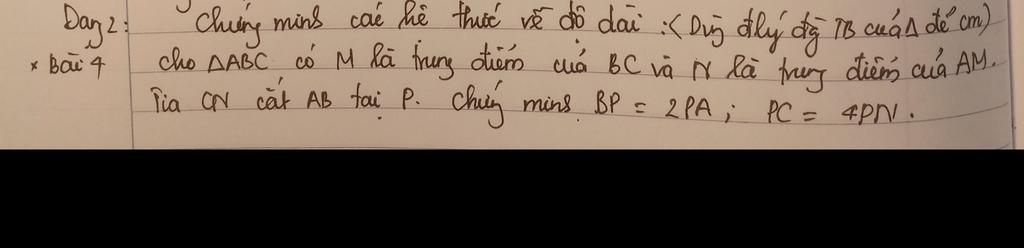 Dạng 2: Chứng minh các hệ thức về độ dài : (Dùng đlý đg TB của Δ để cm)
* bài 4 cho ΔABC có M là trung điểm của BC và N là trung điểm của AM.
Tia CN cắt AB tại P. Chứng minh BP = 2PA ; PC = 4PN.